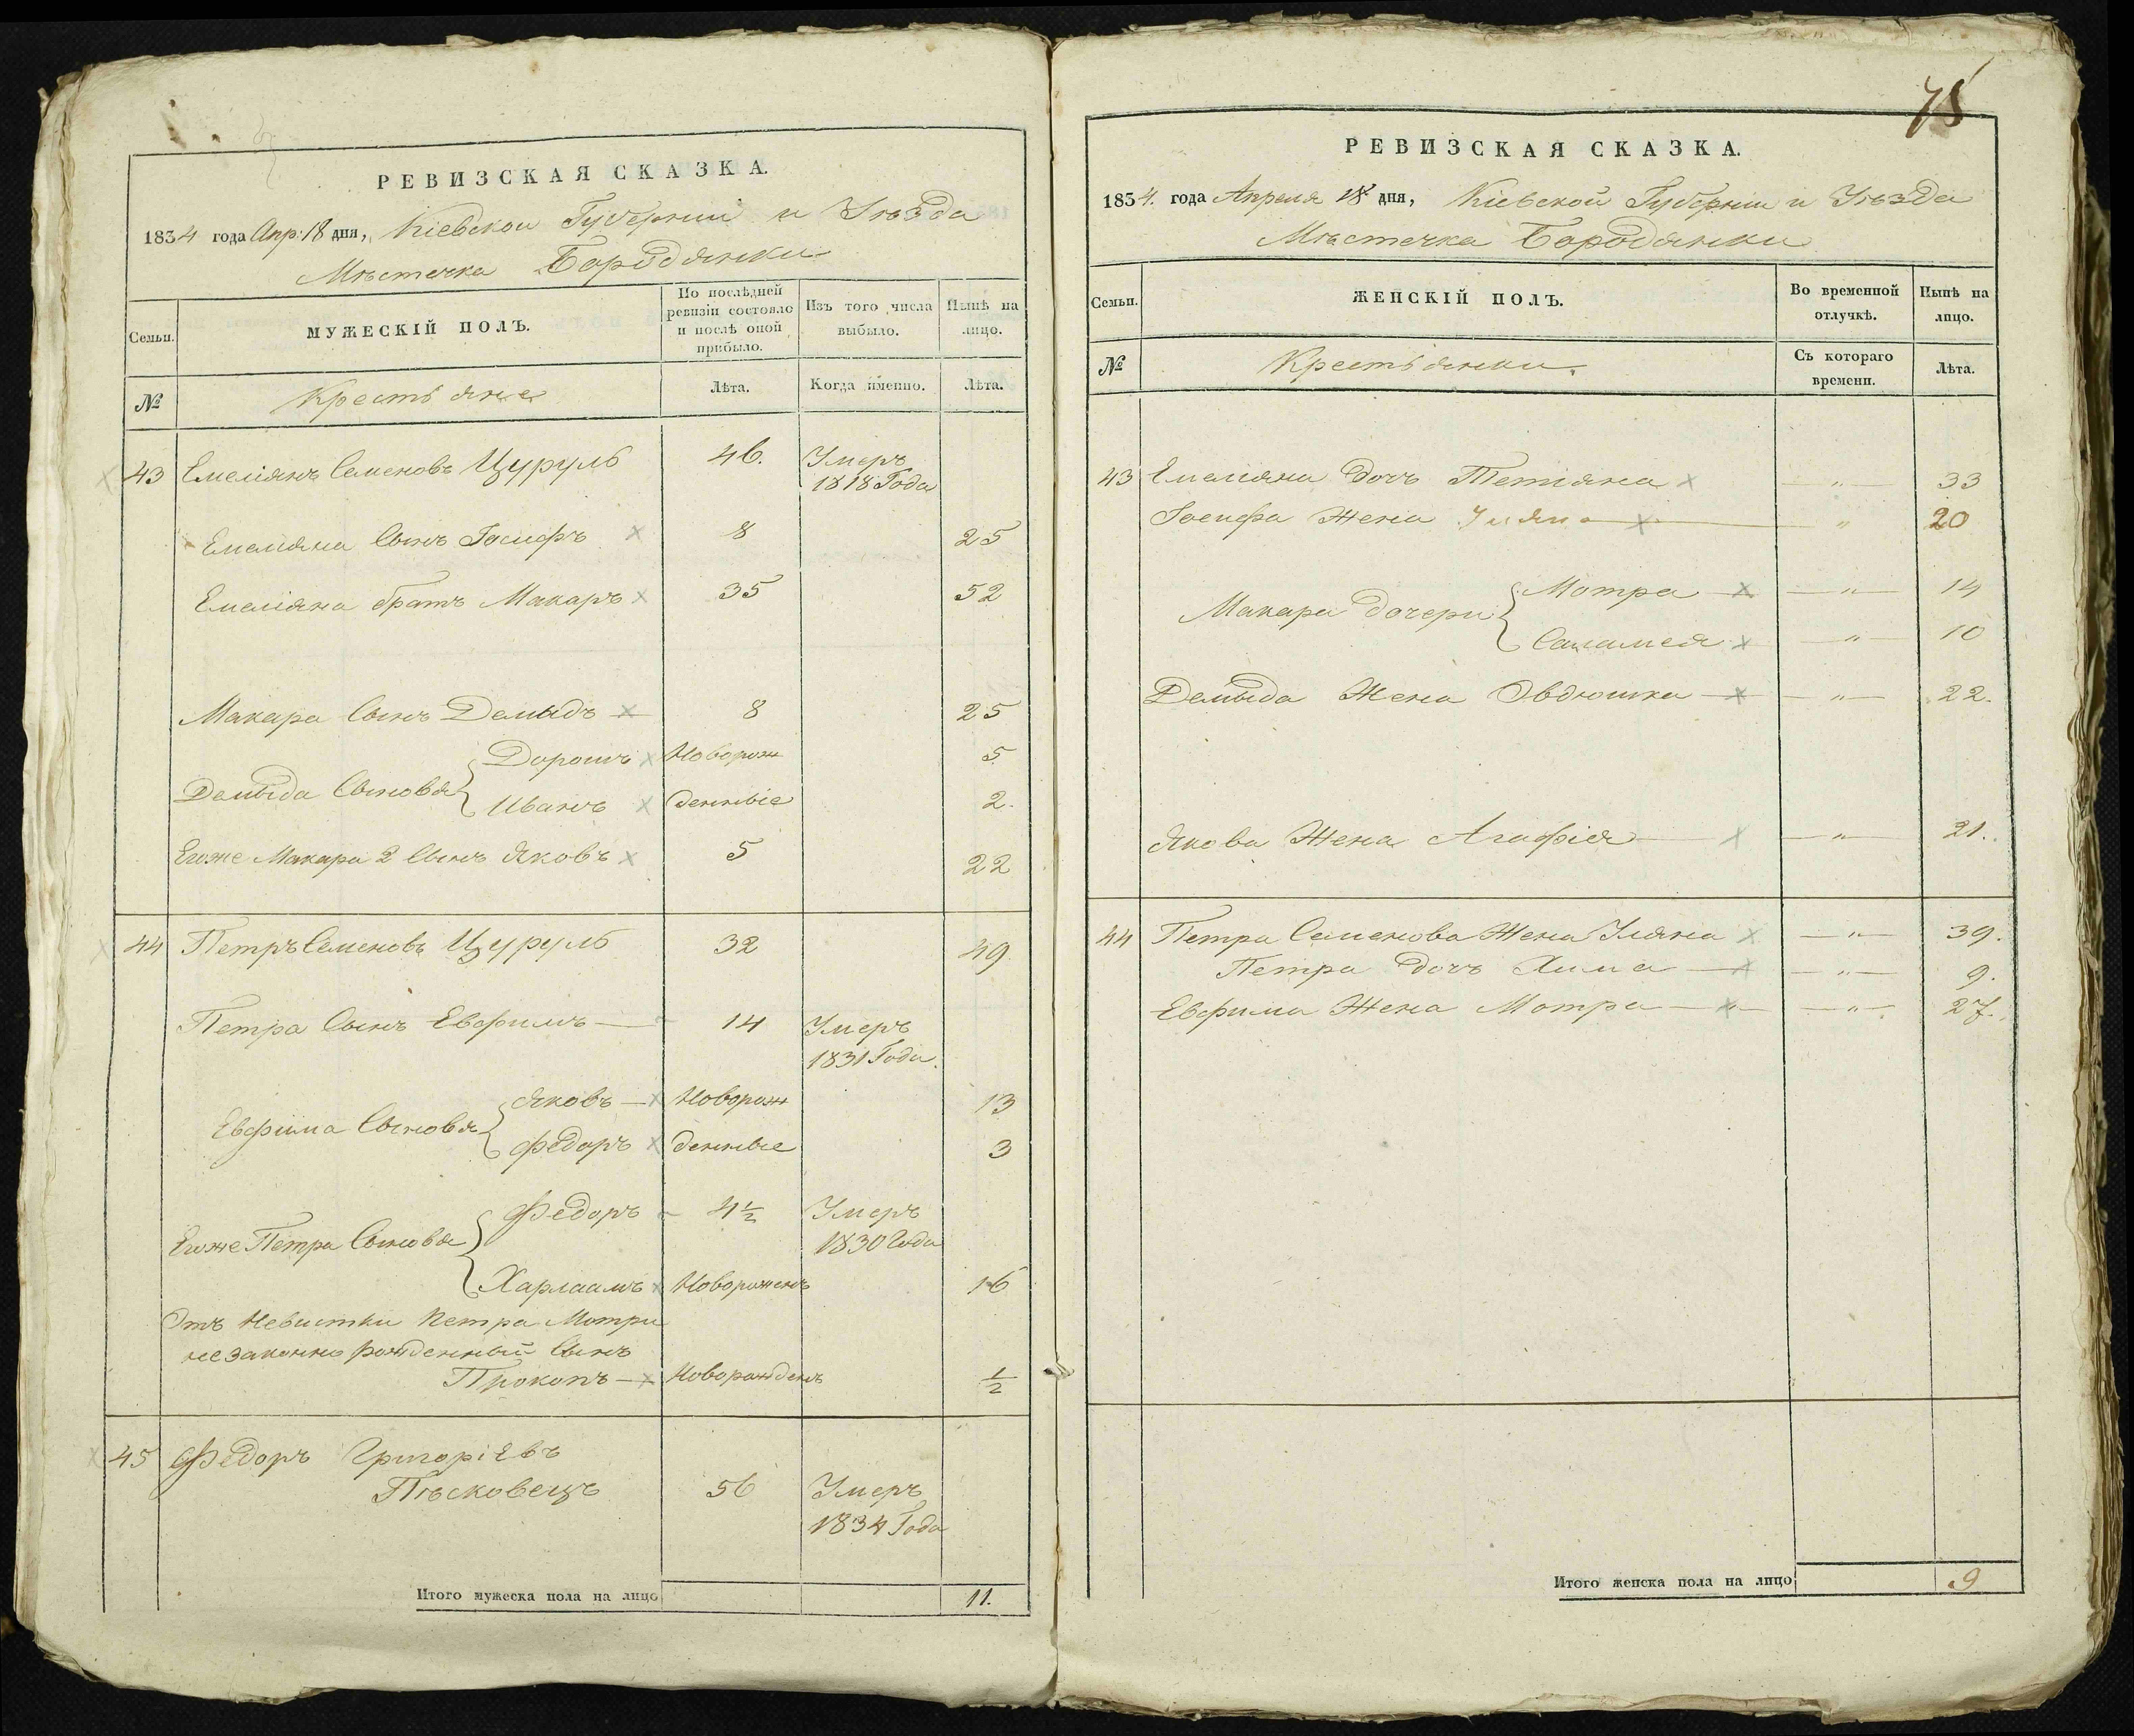 РЕВИЗСКАЯ СКАЗКА.
1834 года Апр: 18 дня, Кіевской Губерніи и Уѣзда
Мѣстечка Бородянки
Семьи.
МУЖЕСКІЙ ПОЛЪ.
По послѣдней
ревизіи состояло
и послѣ оной
прибыло.
Изъ того числа
выбыло.
Нынѣ на
лицо.
№
Крестьяне
Лѣта.
Когда именно.
Лѣта.
43 Емеліянъ Семеновъ Цуруль 46. Умеръ
1818 Года
Емеліяна Сынъ Іосифъ 8 25
Емеліяна братъ Макаръ 35 52
Макара Сынъ Демыдъ 8 25
Дорошъ Новорож 5.
Демыда Сыновья
Иванъ денные 2.
Егоже Макара 2 Сынъ Яковъ 5 22
44 Петръ Семеновъ Цуруль 32 49.
Петра Сынъ Евфимъ 14 Умеръ
1831 Года.
Яковъ Новорож 13
Евфима Сыновья
Федоръ денные 3
Федоръ 4½ Умеръ
1830 Года
Егоже Петра Сыновья
Харлаамъ Новорожденъ 16
Отъ Невистки Петра Мотри
незаконно рожденный Сынъ
Прокопъ Новорожденъ ½
45 Федоръ Григоріевъ
Пѣсковецъ 56 Умеръ
1834 Года
Итого мужеска пола на лицо 11.
75
РЕВИЗСКАЯ СКАЗКА.
1834. года Апреля 18 дня, Кіевской Губерніи и Уѣзда
Мѣстечка Бородянки
Семьи.
ЖЕНСКІЙ ПОЛЪ.
Во временной
отлучкѣ.
Нынѣ на
лицо.
№
Крестьянки.
Съ котораго
времени.
Лѣта.
43 Емеліяна Дочь Тетіяна — " — 33
Іосифа Жена Уляна " 20
Мотра — " — 14
Макара Дочери
Саламея — " — 10
Демыда Жена Овдюшка — " — 22.
Якова Жена Агафія — " — 21.
44 Петра Семенова Жена Уляна — " — 39.
Петра Дочь Хима — " — 9.
Евфима Жена Мотра — " — 27.
Итого женска пола на лицо 9